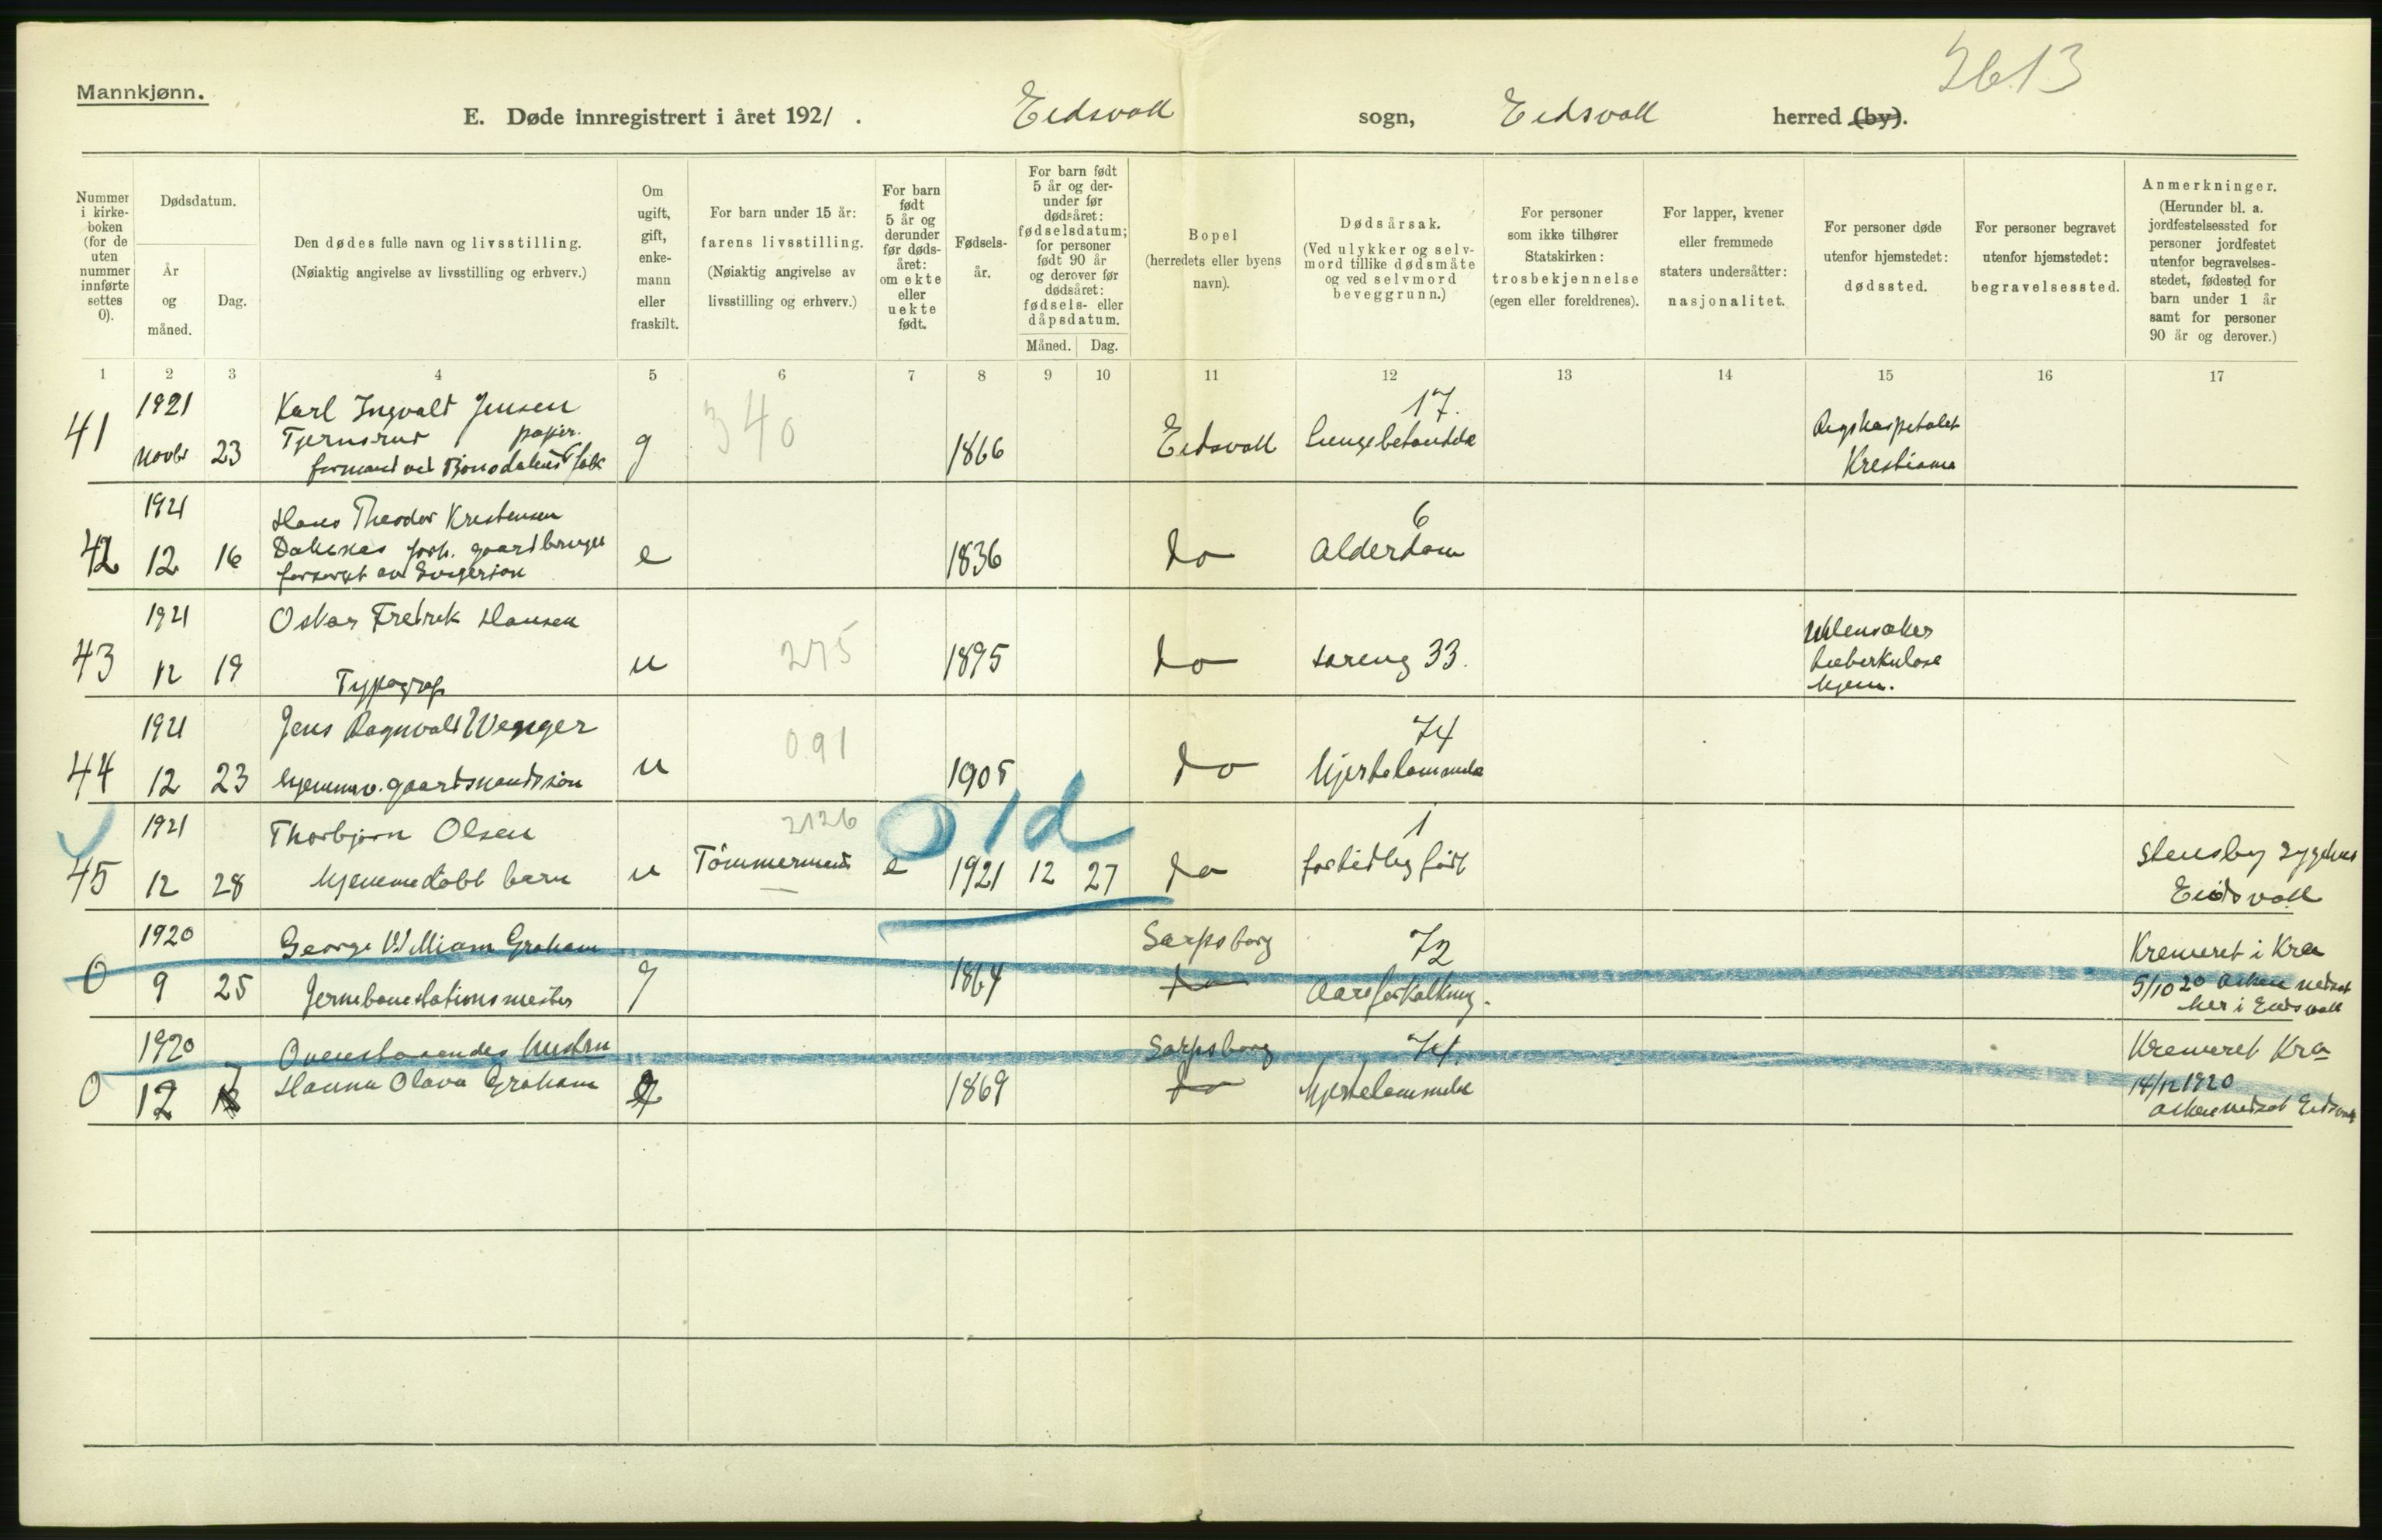 2613
Mannkjønn.
E. Døde innregistrert i året 1921. Eidsvoll sogn, Eidsvoll herred (by).
Nummer i kirke-boken (for de uten nummer innførte settes 0).
Dødsdatum.
År og måned.
Dag.
Den dødes fulle navn og livsstilling.
(Nøiaktig angivelse av livsstilling og erhverv.)
Om ugift, gift, enke-mann eller fraskilt.
For barn under 15 år:
farens livsstilling.
(Nøiaktig angivelse av livsstilling og erhverv.)
For barn født 5 år og derunder før døds-året: om ekte eller uekte født.
Fødsels-år.
For barn født 5 år og der-under før dødsåret: fødselsdatum; for personer født 90 år og derover før dødsåret: fødsels- eller dåpsdatum.
Måned. Dag.
Bopel
(herredets eller byens navn).
Dødsårsak.
(Ved ulykker og selv-mord tillike dødsmåte og ved selvmord beveggrunn.)
For personer som ikke tilhører Statskirken: trosbekjennelse (egen eller foreldrenes).
For lapper, kvener eller fremmede staters undersåtter: nasjonalitet.
For personer døde utenfor hjemstedet: dødssted.
For personer begravet utenfor hjemstedet: begravelsessted.
Anmerkninger.
(Herunder bl. a. jordfestelsessted for personer jordfestet utenfor begravelses-stedet, fødested for barn under 1 år samt for personer 90 år og derover.)
1 2 3 4 5 6 7 8 9 10 11 12 13 14 15 16 17
1921 Karl Ingvald Jensen 340 17.
41 Novbr 23 Tjernsrud papir. g 1866 Eidsvoll
formand ved
Kristiania
1921 Hans Theodor Kristensen 6
42 12 16 forh. gaardbruger e 1836 do Alderdom
1921 Oskar Fredrik Hansen
43 12 19 Typograf u 275 1895 do 33. Ullensaker tuberkulose hjem.
1921 Jens Ragnvald Wenger 091 74
44 12 23 hjemmev. gaardmandssøn u 1905 do Hjertelammelse
1921 Thorbjørn Olsen 2126 01d 1
45 12 28 hjemmedøbt barn u Tømmermand e 1921 12 27 do fortidlig født Stensby sygehus
Eidsvoll
1920 George William Graham Sarpsborg 72 Kremeret i Kra
0 9 25 Jernbanestationsmester g 1864 do Aareforkalkning. 5/10 20 Asken nedsat
her i Eidsvoll
1920 Ovenstaaendes hustru Sarpsborg 74. Kremeret Kra
0 12 7 Hanna Olava Graham 1869 do Hjertelammelse 14/12 1920
Asken nedsat Eidsvoll